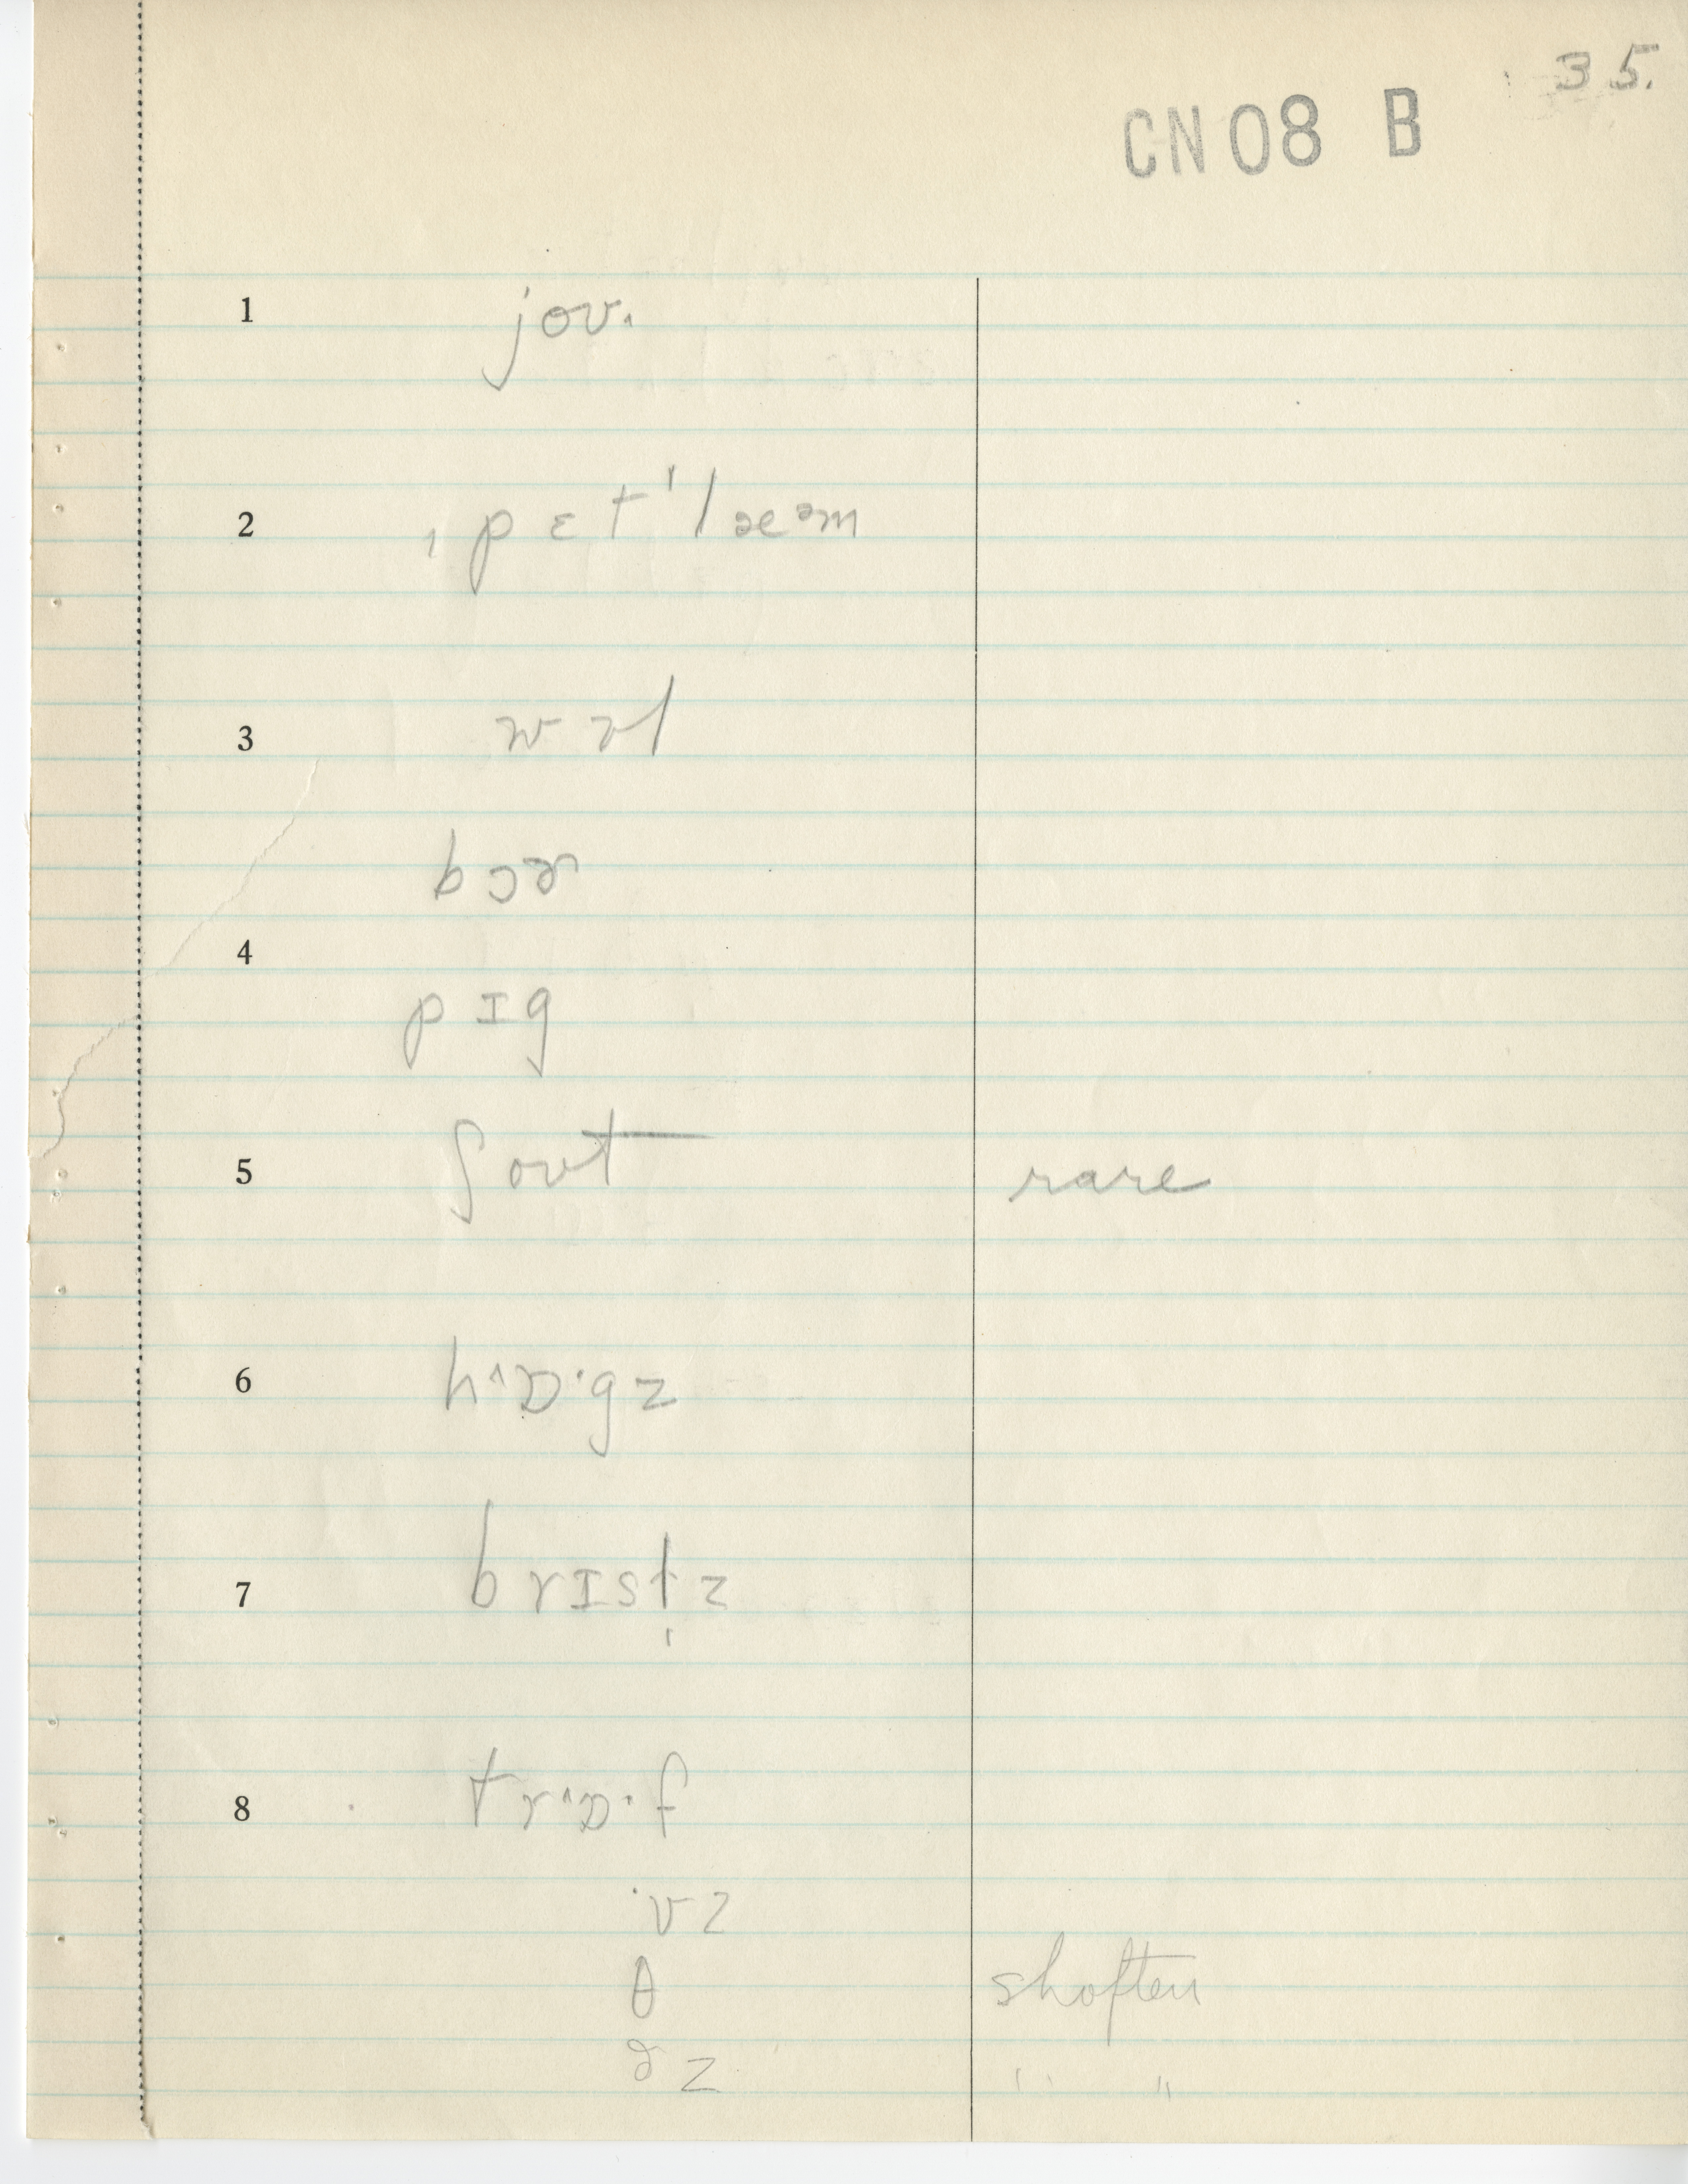 35.
CN08 B
1 joʊ.
2 ˌpɛt'læᵊm
3 wʊl
bɔɚ
4
pɪg
5 ʃoʊt rare
6 hˆɒ·gz
7 brɪsl̩z
8 trˆɒ·f
·vz
θ shoften
ðz " "